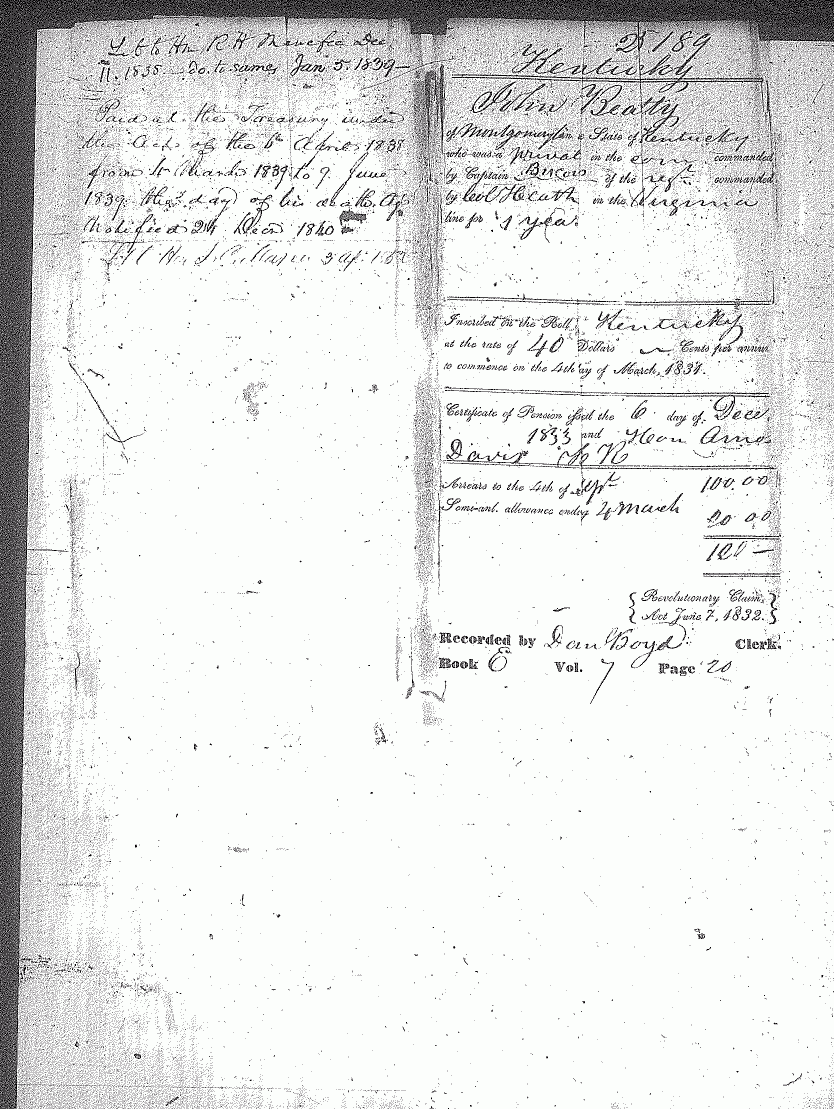 Let to Hn R H Menefee Dec.
11. 1838 do. to same Jan 5. 1839
Paid at the Treasury under
the Act of the 6th April 1838
from 4 March 1839 to 9. June
1839 the day of his death. Agt
Notified 24 Decr 1840
25189
Kentucky
John Beatty
of Montgomery in e State of Kentucky
who was a privat in the comy commanded
by Captain of the regt commanded
by Col Heath in the Virginia
line for 1 year
Inscribed on the Roll, Kentucky
at the rate of 40 Dollars Cents per annum
to commence on the 4th ay of March, 1831.
Certificate of Pension issd the 6 day of Dece.
1833 and Hon Amos
Davis H R
Arrears to the 4th of Sept 100.00
Semi-anl. allowance ending 4 March 20 00
120 —
{ Revolutionary Claim, }
{ Act June 7, 1832. }
Recorded by Dan Boyd Clerk.
Book E Vol. 7 Page 20